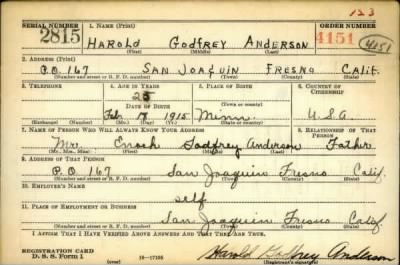 153
SERIAL NUMBER 1. NAME (Print) ORDER NUMBER
2815 HAROLD GODFREY ANDERSON 4151 4151
(First) (Middle) (Last)
2. ADDRESS (Print)
P.O. 167 SAN JOAQUIN FRESNO CALIF.
(Number and street or R. F. D. number) (Town) (County) (State)
3. TELEPHONE 4. AGE IN YEARS 5. PLACE OF BIRTH 6. COUNTRY OF CITIZENSHIP
25
DATE OF BIRTH (Town or county)
Feb 17 1915 Minn. U.S.A
(Exchange) (Number) (Mo.) (Day) (Yr.) (State or country)
7. NAME OF PERSON WHO WILL ALWAYS KNOW YOUR ADDRESS 8. RELATIONSHIP OF THAT PERSON
Mr. Enoch Godfrey Anderson Father
(Mr., Mrs., Miss) (First) (Middle) (Last)
9. ADDRESS OF THAT PERSON
P.O. 167 San Joaquin Fresno Calif.
(Number and street or R. F. D. number) (Town) (County) (State)
10. EMPLOYER'S NAME
self
11. PLACE OF EMPLOYMENT OR BUSINESS
San Joaquin Fresno Calif.
(Number and street or R. F. D. number) (Town) (County) (State)
I AFFIRM THAT I HAVE VERIFIED ABOVE ANSWERS AND THAT THEY ARE TRUE.
REGISTRATION CARD
D. S. S. Form 1 (over) 16-17105 Harold Godfrey Anderson
(Registrant's signature)